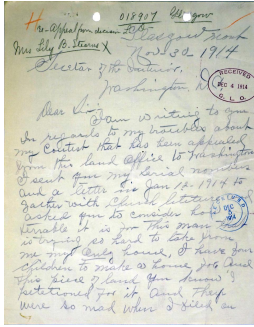 018907 Glasgow
re-Appeal from decision
Mrs Lily B. Stearns X Glasgow Mont
Nov. 30 1914
Secretary of the Interior.
Washington, D
RECEIVED
DEC 4 1914
G. L. O.
Dear Sir;
I am writing to you
In regards to my troubles about
my Contest that has been appealed
from this land office to Washington
I sent you my serial number
and a letter in Jan 12 1914 to
gather with
asked you to consider how
terrable it is for this man
is trying so hard to take from
me my only home, I have
children to make a home for and
This piece of land you know I
petitioned for it, and They
were so mad when I filed on
RECEIVED
DEC
1914